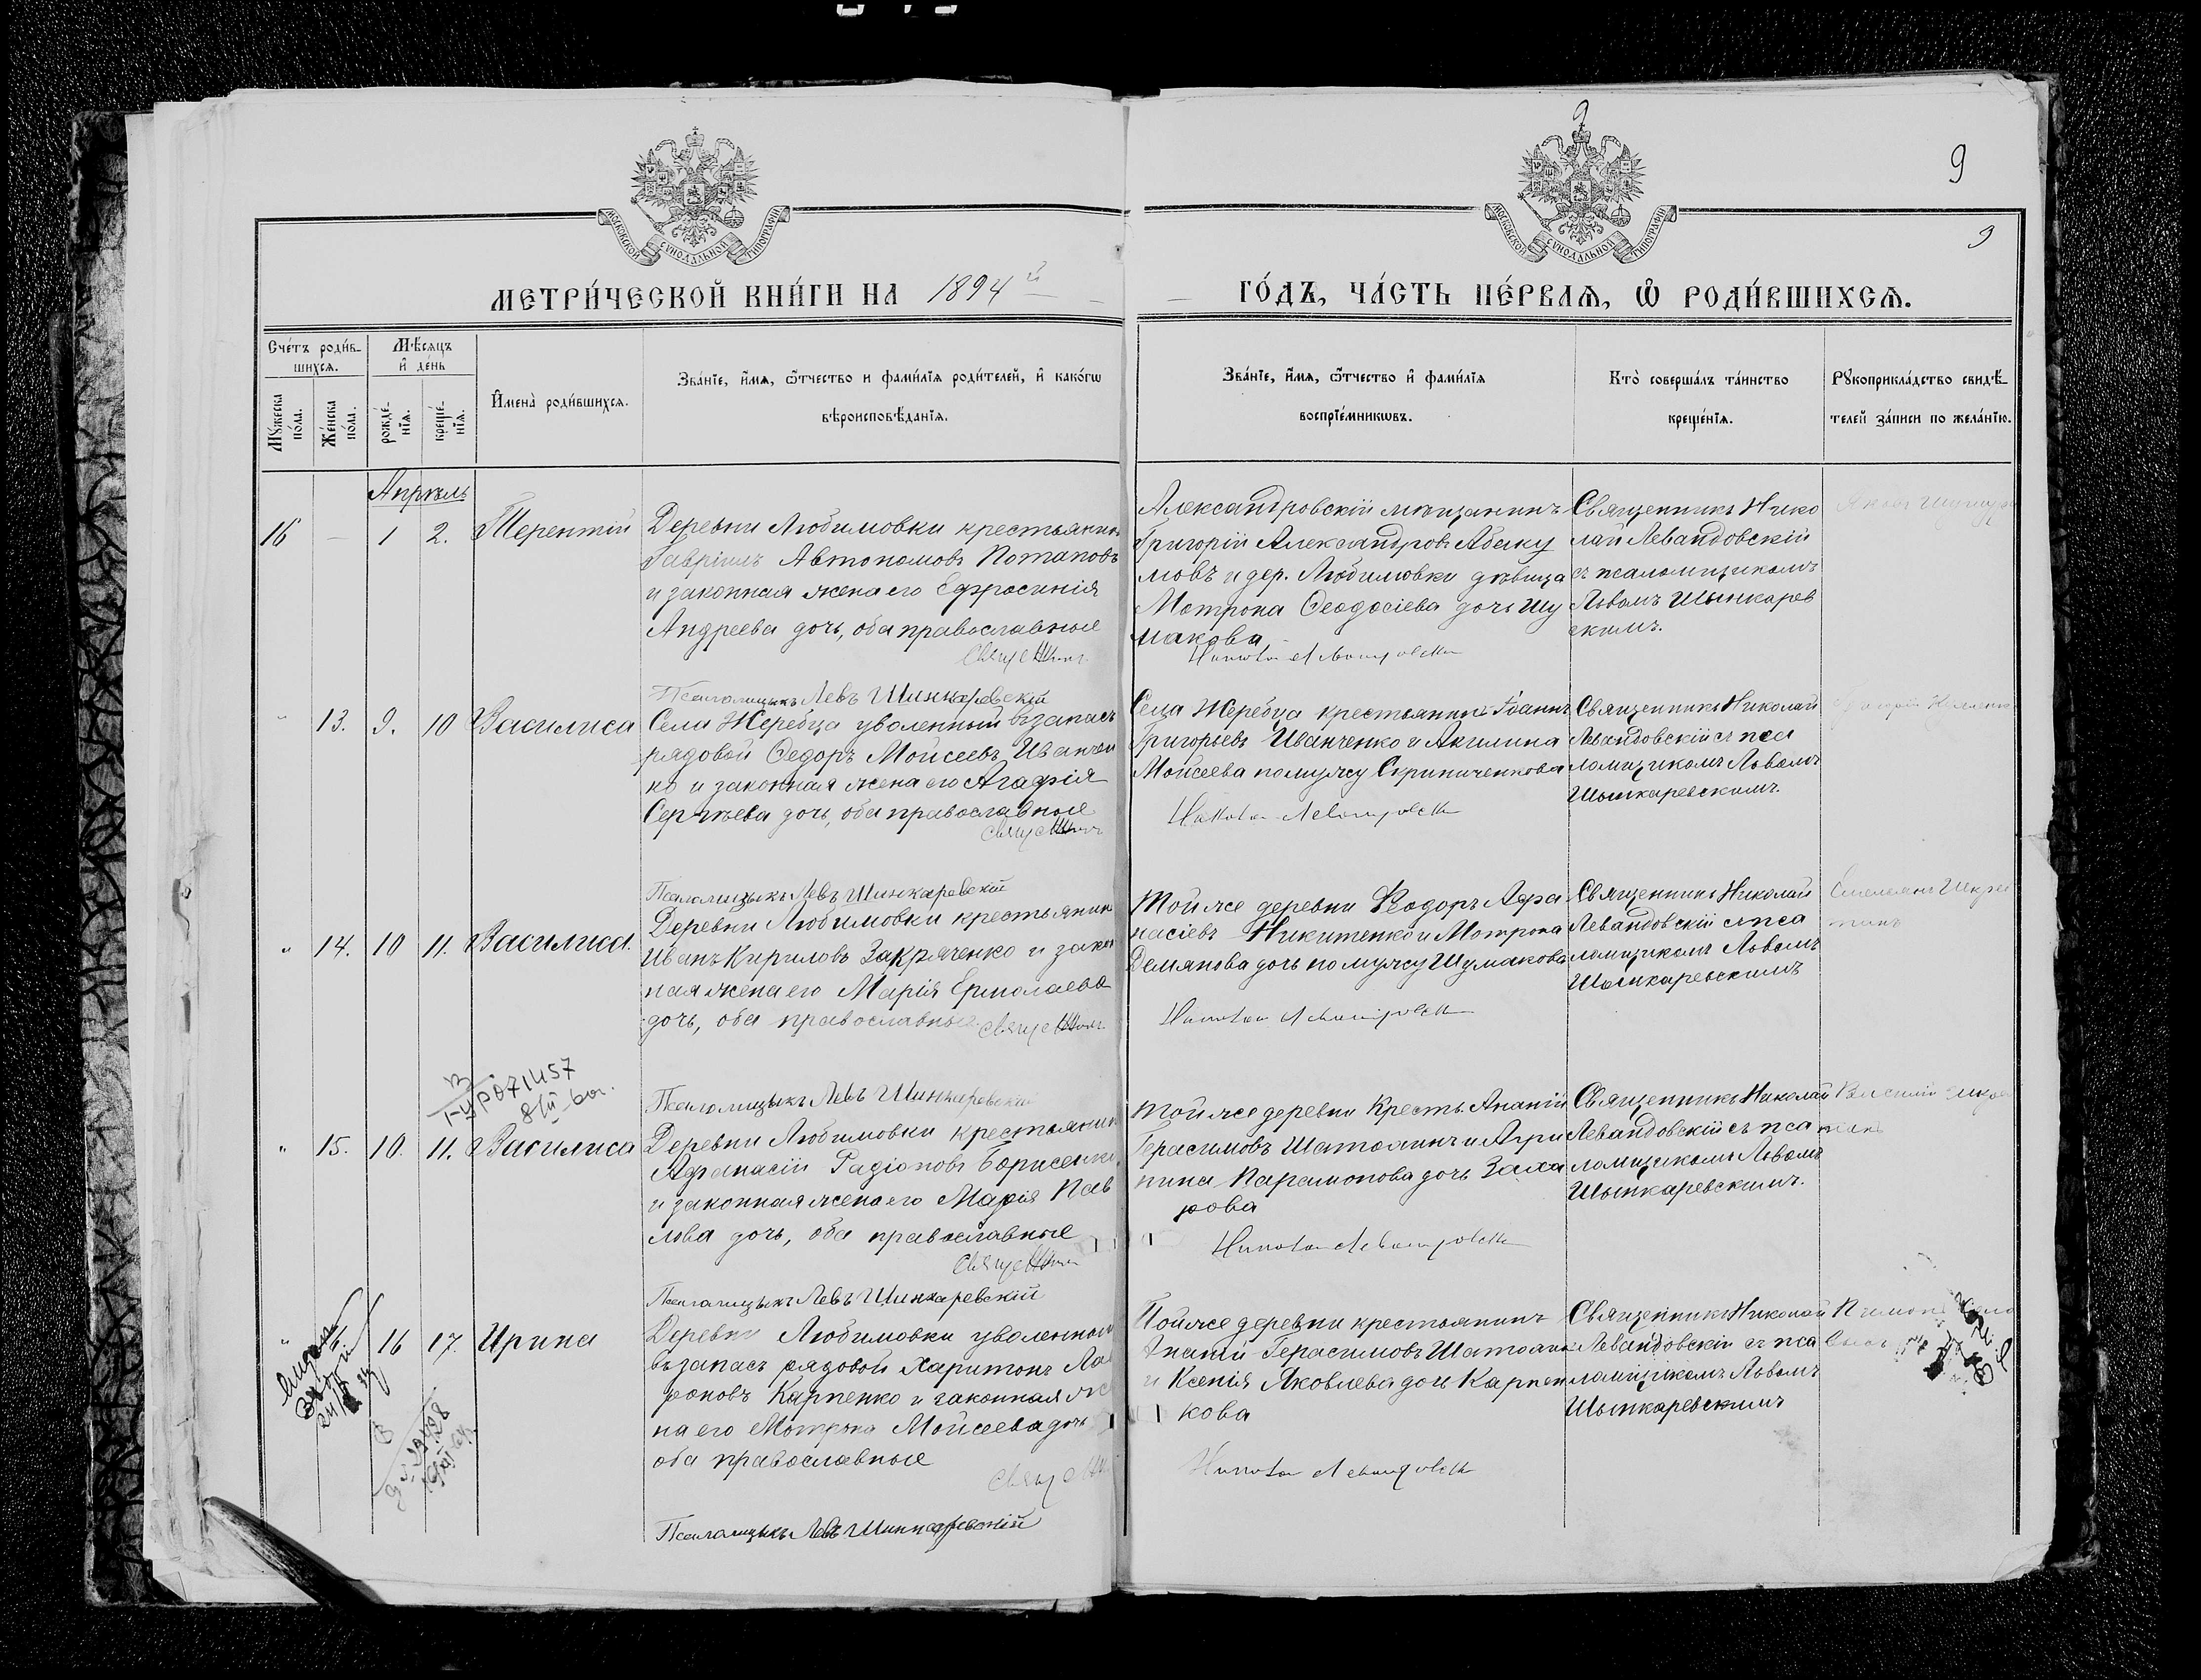 9
9
9
МОСКОВСКОЙ СѴНОДАЛЬНОЙ ТИПОГРАФІИ
МОСКОВСКОЙ СѴНОДАЛЬНОЙ ТИПОГРАФІИ
МЕТРИ́ЧЕСКОЙ КНИ́ГИ НА 1894й
ГО́ДЪ, ЧА́СТЬ ПЕ́РВАѦ, Ѡ҆ РОДИ́ВШИХСѦ.
Сче́тъ роди́в-
шихсѧ.
Мꙋ́жеска по́ла.
Же́нска по́ла.
Мѣ́сѧцъ
и҆ де́нь
рожде́нїѧ.
креще́нїѧ.
И҆мена̀ роди́вшихсѧ.
Зва́нїе, и҆́мѧ, ѻ҆́тчество и фами́лїѧ роди́телей, и҆ како́гѡ
вѣроисповѣ́данїѧ.
Зва́нїе, и҆́мѧ, ѻ҆́тчество и҆ фами́лїѧ
воспрїе́мникѡвъ.
Кто̀ соверша́лъ та́инство
креще́нїѧ.
Рꙋкоприкла́дство свидѣ́-
телей за́писи по жела́нїю.
Апрѣль
16 — 1 2. Терентій
Деревни Любимовки крестьянинъ
Гавріилъ Автономовъ Потаповъ
и законная жена его Ефросинія
Андреева дочь, оба православные
Священникъ
Александровскій мѣщанинъ
Григорій Александровъ Абаку
мовъ и дер. Любимовки дѣвица
Мотрона Ѳеодосіева дочь Шу
макова
Николай Левандовскій
Священникъ Нико
лай Левандовскій
съ псаломщикомъ
Львомъ Шынкарев
скимъ.
Псаломщыкъ Левъ Шинкаревскій
" 13. 9. 10 Василиса
Села Жеребца уволенный въ запасъ
рядовой Ѳедоръ Мойсеевъ Иванчен
ко и законная жена его Агафія
Сергѣева дочь, оба православные
Священникъ
Села Жеребца крестьянинъ Іоаннъ
Григорьевъ Иванченко и Акилина
Мойсеева по мужу Скрипниченкова
Николай Левандовскій
Священникъ Николай
Левандовскій съ пса
ломщикомъ Львомъ
Шынкаревскимъ.
Псаломщыкъ Левъ Шинкаревскій
" 14. 10 11. Василиса.
Деревни Любимовки крестьянин
Иванъ Кириловъ Закряченко и закон
ная жена его Марія Ермолаева
дочь, оба православные Священникъ
Тойже деревни Ѳеодоръ Афа
насіевъ Никитенко и Мотрона
Демянова дочь по мужу Шумакова
Николай Левандовскій
Священникъ Николай
Левандовскій съ пса
ломщикомъ Львомъ
Шынкаревскимъ
Псаломщыкъ Левъ Шинкаревскій
" 15. 10. 11. Василиса
Деревни Любимовки крестьянин
Афанасій Радіоновъ Борисенко
и законная жена его Марія Пав
лова дочь, оба православные
Священникъ
Тойже деревни Кресть. Ананій
Герасимовъ Шатохинъ и Агри
пина Парамонова дочь Заха
рова
Николай Левандовскій
Священникъ Николай
Левандовскій съ пса
ломщикомъ Львомъ
Шынкаревскимъ.
Псаломщыкъ Левъ Шинкаревскій
" 16 17. Ирина
Деревни Любимовки уволенный
въ запасъ рядовой Харитонъ Ла
роновъ Карпенко и законная же
на его Мотрона Мойсеева дочь
оба православные
Тойже деревни крестьянинъ
Ананій Герасимовъ Шатохин
и Ксенія Яковлева дочь Карпен
кова
Николай Левандовскій
Священникъ Николай
Левандовскій съ пса
ломщикомъ Львомъ
Шынкаревскимъ
Псаломщыкъ Левъ Шинкаревскій